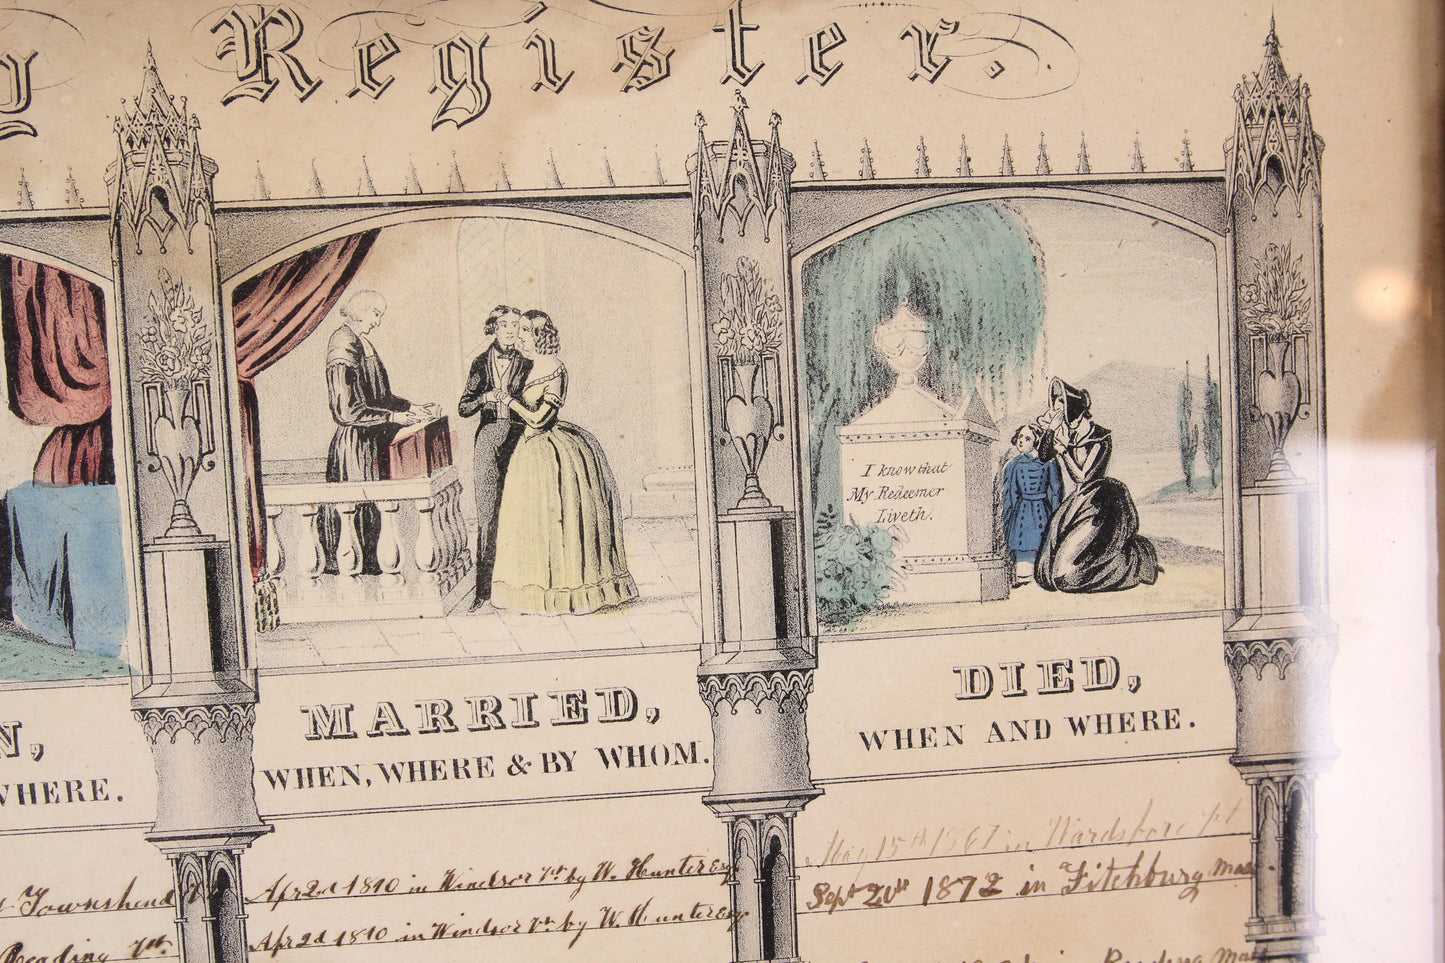 y Register.
I know that
My Redeemer
Liveth.
N,
WHERE.
MARRIED,
WHEN, WHERE & BY WHOM.
DIED,
WHEN AND WHERE.
Townshend Vt
Apr 2d 1810 in Windsor Vt by W. Hunter Esq
May 15th 1867 in Wardsboro Vt
Reading Vt.
Apr 2d 1810 in Windsor Vt by W. Hunter Esq
Sept 20th 1872 in Fitchburg Mass
in Reading Mass